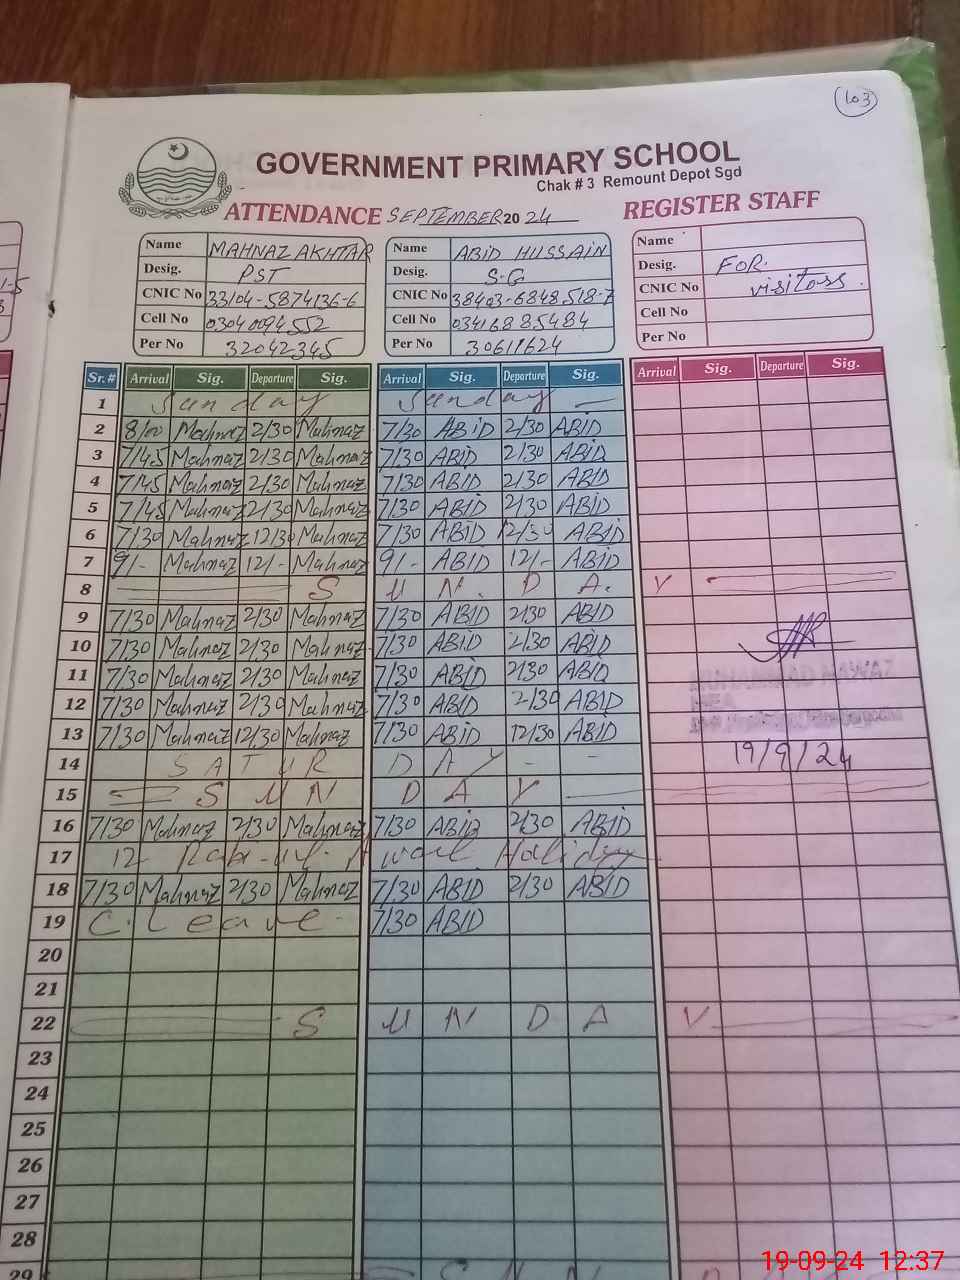 103
GOVERNMENT PRIMARY SCHOOL
Chak # 3 Remount Depot Sgd
ATTENDANCE SEPTEMBER 2024 REGISTER STAFF
Name MAHNAZ AKHTAR Name ABID HUSSAIN Name
Desig. PST Desig. S-G Desig. FOR
CNIC No 33104-5874136-6 CNIC No 38403-6848518-7 CNIC No visitors.
Cell No 03040094552 Cell No 03416885484 Cell No
Per No 32042345 Per No 30611624 Per No
Sr.# Arrival Sig. Departure Sig. Arrival Sig. Departure Sig. Arrival Sig. Departure Sig.
1 Sunday Sunday
2 8/00 Mahnaz 2/30 Mahnaz 7/30 ABID 2/30 ABID
3 7/45 Mahnaz 2/30 Mahnaz 7/30 ABID 2/30 ABID
4 7/45 Mahnaz 2/30 Mahnaz 7/30 ABID 2/30 ABID
5 7/45 Mahnaz 2/30 Mahnaz 7/30 ABID 2/30 ABID
6 7/30 Mahnaz 12/30 Mahnaz 7/30 ABID 12/30 ABID
7 9/- Mahnaz 12/- Mahnaz 9/- ABID 12/- ABID
8 S U N. D A. Y
9 7/30 Mahnaz 2/30 Mahnaz 7/30 ABID 2/30 ABID
10 7/30 Mahnaz 2/30 Mahnaz 7/30 ABID 2/30 ABID
11 7/30 Mahnaz 2/30 Mahnaz 7/30 ABID 2/30 ABID
12 7/30 Mahnaz 2/30 Mahnaz 7/30 ABID 2/30 ABID
13 7/30 Mahnaz 12/30 Mahnaz 7/30 ABID 12/30 ABID
14 S A T U R D A Y - - 19/9/24
15 S U N D A Y
16 7/30 Mahnaz 2/30 Mahnaz 7/30 ABID 2/30 ABID
17 12 Rabi-ul-Awal Holiday
18 7/30 Mahnaz 2/30 Mahnaz 7/30 ABID 2/30 ABID
19 C. Leave 7/30 ABID
20
21
22 S U N D A Y
23
24
25
26
27
28
29
19-09-24 12:37